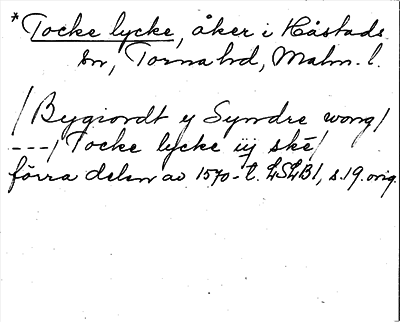 *Tocke lycke, åker i Håstads
sn, Torna hd, Malm. l.
/Bygiordt y Syndre wong/
---/Tocke lycke iij ske/
förra delen av 1570-t. LSLB1, s.19. orig.